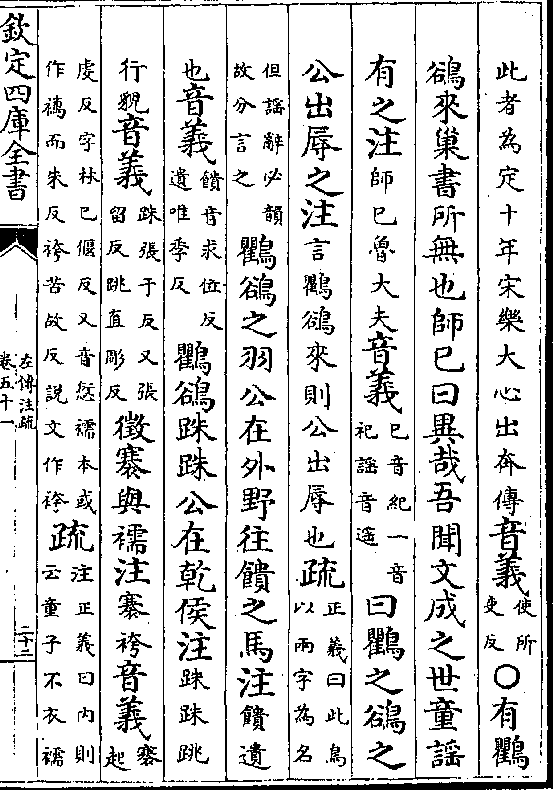 此者為定十年宋樂大心出奔傳音義使所吏反○有鸜
鵒來巢書所無也師已曰異哉吾聞文成之世童謡
有之注師已魯大夫音義已音紀一音祀謡音遥曰鸜之鵒之
公出辱之注言鸜鵒來則公出辱也疏正義曰此鳥以兩字為名
但謡辭必韻故分言之鸜鵒之羽公在外野往饋之馬注饋遺
也音義饋音求位反遺唯季反鸜鵒跦跦公在乾侯注跦跦跳
行貌音義跦張于反又張留反跳直彫反徵褰與襦注褰袴音義褰起
虔反字林已偃反又音愆襦本或作𧞫而朱反袴苦故反説文作袴疏注正義曰内則云童子不衣襦
欽定四庫全書
左傳注疏
卷五十一
二十三